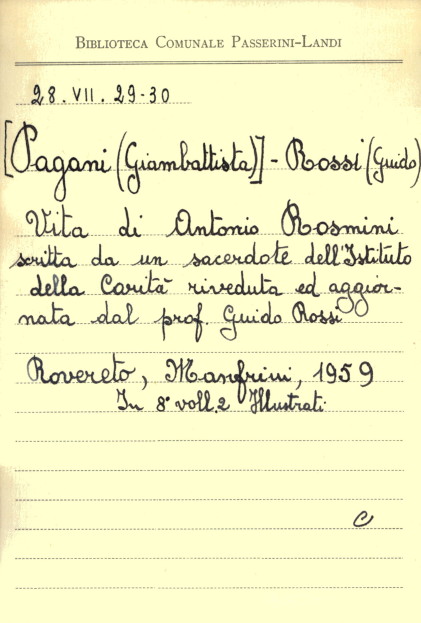 BIBLIOTECA COMUNALE PASSERINI-LANDI
28. VII. 29-30
[Pagani (Giambattista)] - Rossi (Guido)
Vita di Antonio Rosmini
scritta da un sacerdote dell'Istituto
della Carità riveduta ed aggior-
nata dal prof. Guido Rossi
Rovereto, Manfrini, 1959
In 8° voll. 2 Illustrati
C